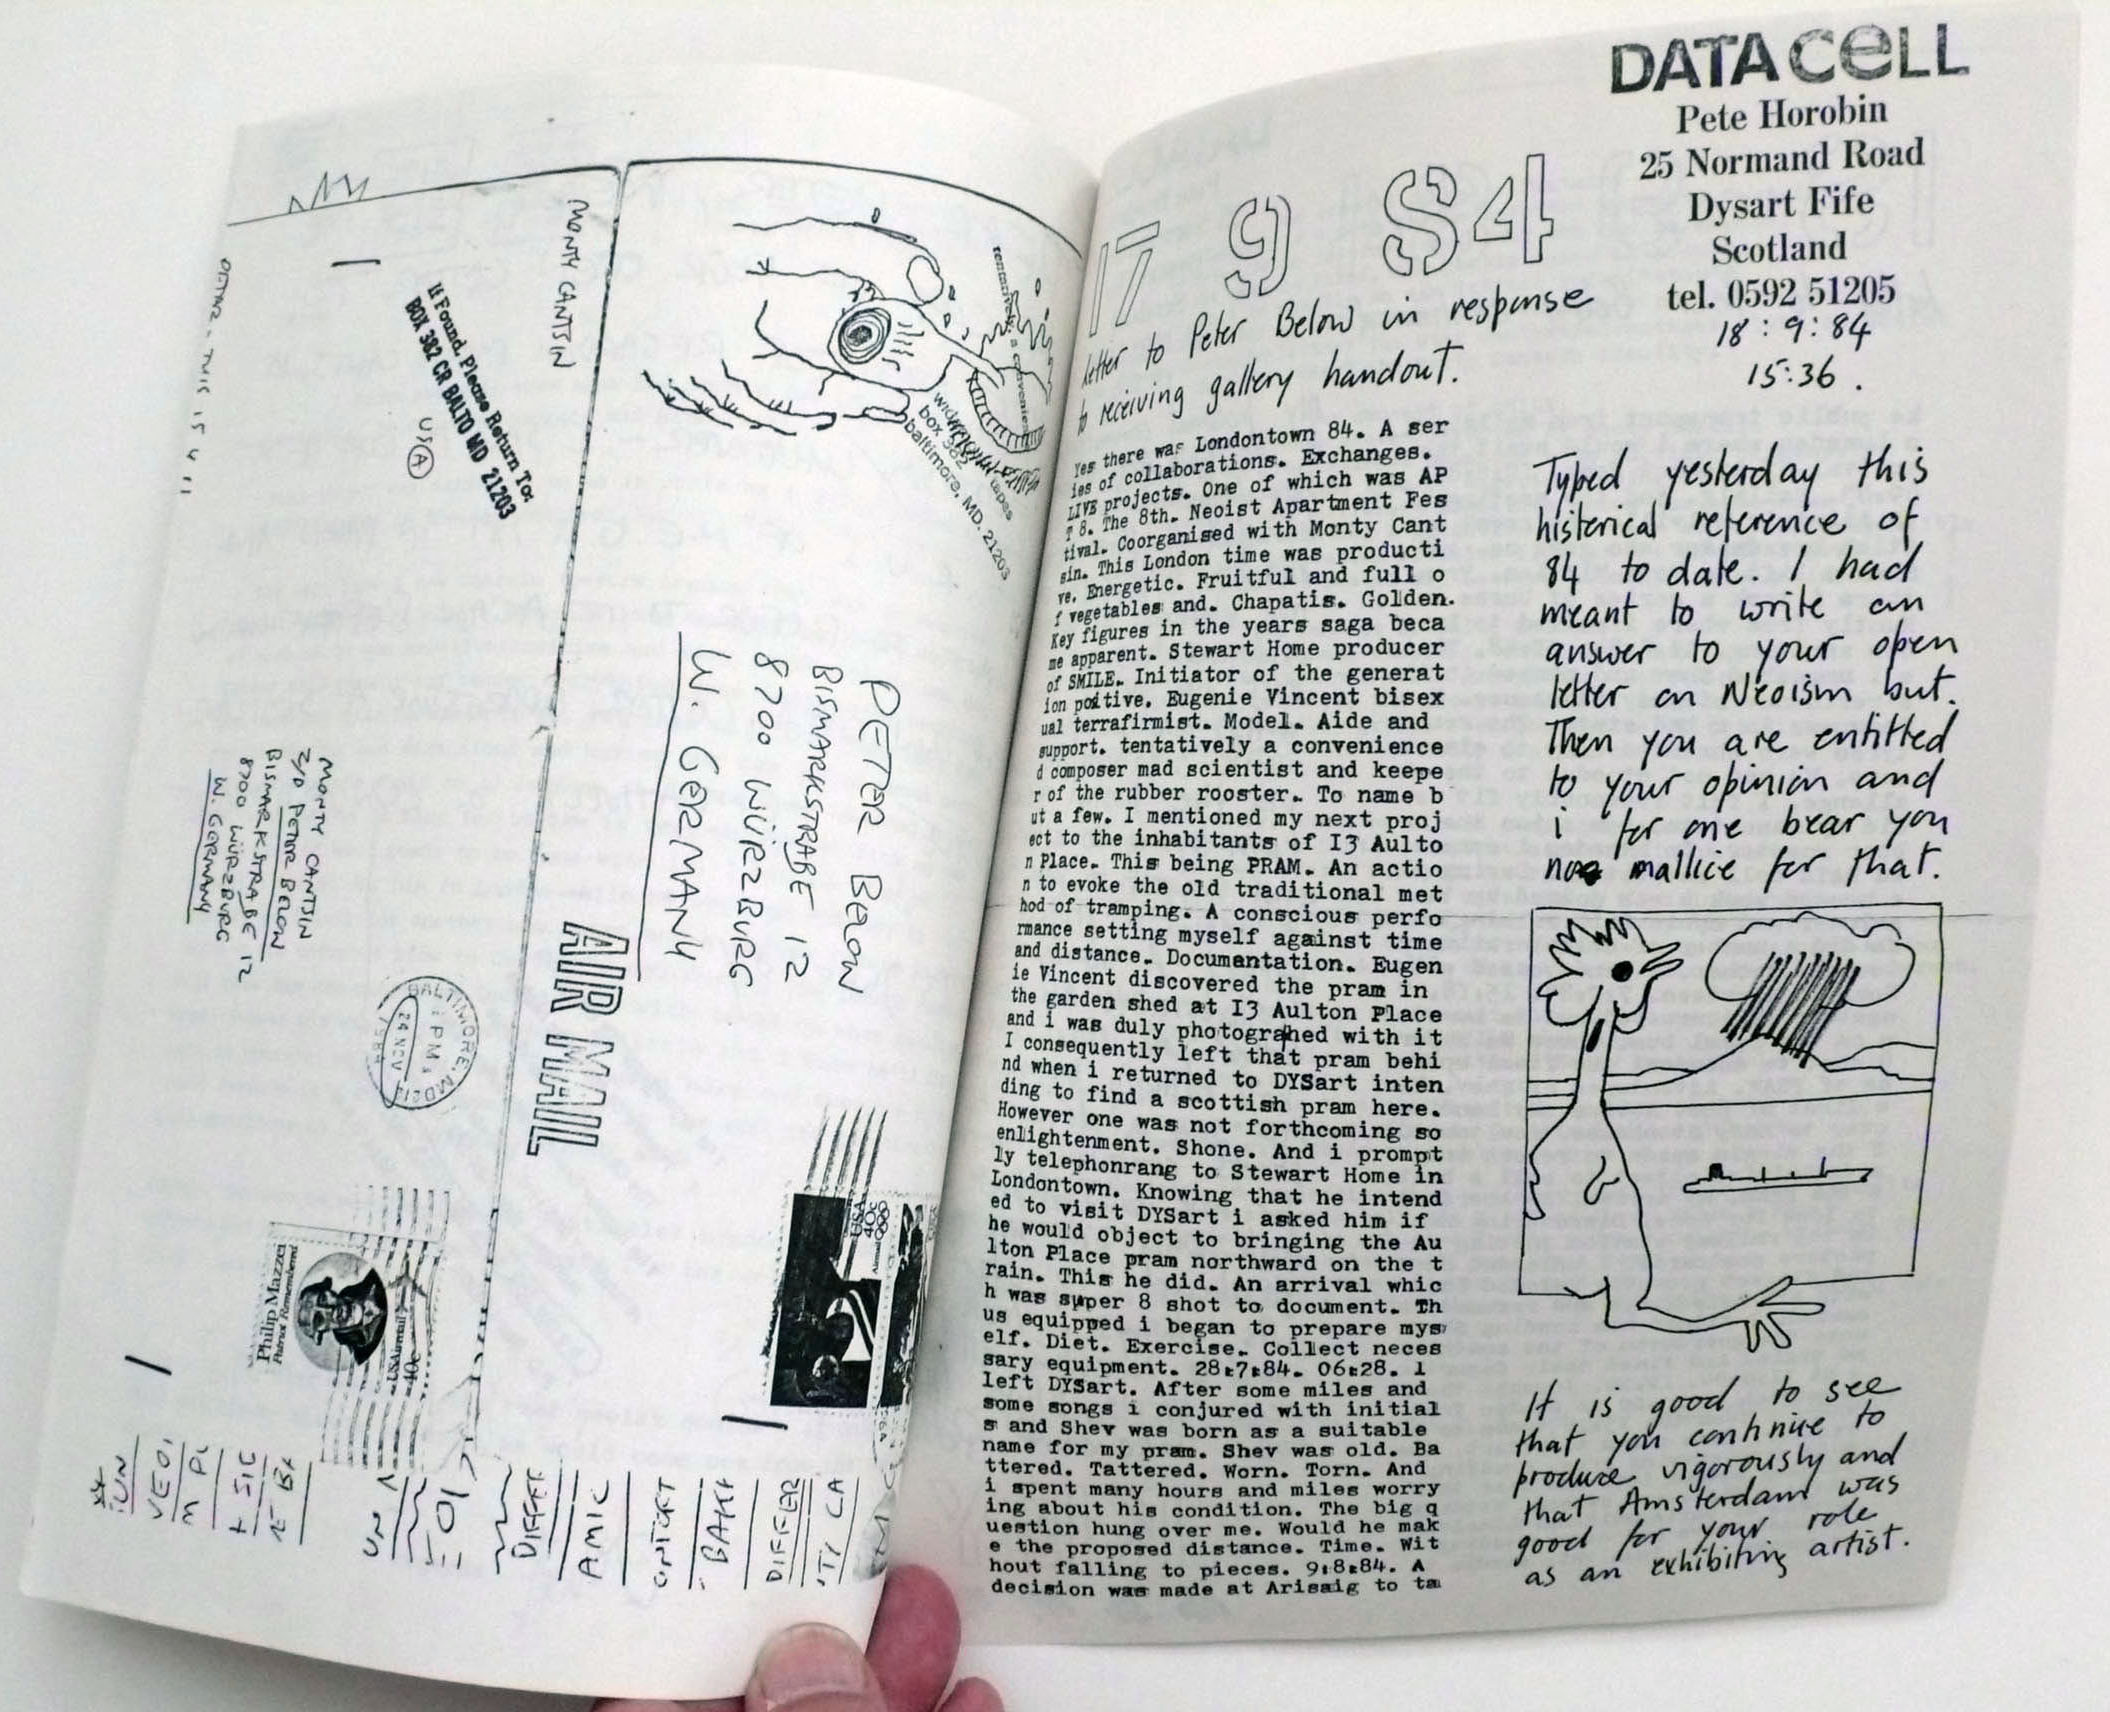 MONTY CANTSIN
If Found, Please Return To:
BOX 382 CR BALTO MD 21203
USA
widemouth tapes
box 382
baltimore, MD. 21203
PETER BELOW
BISMARKSTRAßE 12
8700 WÜRZBURG
W. GERMANY
AIR MAIL
MONTY CANTSIN
c/o PETER BELOW
BISMARKSTRAßE 12
8700 WÜRZBURG
W. GERMANY
BALTIMORE, MD
PM
24 NOV
1984
Philip Mazzei
Patriot Remembered
USAirmail
40c
USA
40c
DATA CELL
Pete Horobin
25 Normand Road
Dysart Fife
Scotland
tel. 0592 51205
18:9:84
15:36.
17 9 84
letter to Peter Below in response
to receiving gallery handout.
Yes there was Londontown 84. A ser
ies of collaborations. Exchanges.
LIVE projects. One of which was AP
T 8. The 8th. Neoist Apartment Fes
tival. Coorganised with Monty Cant
sin. This London time was producti
ve. Energetic. Fruitful and full o
f vegetables and. Chapatis. Golden.
Key figures in the years saga beca
me apparent. Stewart Home producer
of SMILE. Initiator of the generat
ion poitive. Eugenie Vincent bisex
ual terrafirmist. Model. Aide and
support. tentatively a convenience
d composer mad scientist and keepe
r of the rubber rooster. To name b
ut a few. I mentioned my next proj
ect to the inhabitants of I3 Aulto
n Place. This being PRAM. An actio
n to evoke the old traditional met
hod of tramping. A conscious perfo
rmance setting myself against time
and distance. Documentation. Eugen
ie Vincent discovered the pram in
the garden shed at I3 Aulton Place
and i was duly photograhed with it
I consequently left that pram behi
nd when i returned to DYSart inten
ding to find a scottish pram here.
However one was not forthcoming so
enlightenment. Shone. And i prompt
ly telephonrang to Stewart Home in
Londontown. Knowing that he intend
ed to visit DYSart i asked him if
he would object to bringing the Au
lton Place pram northward on the t
rain. This he did. An arrival whic
h was super 8 shot to document. Th
us equipped i began to prepare mys
elf. Diet. Exercise. Collect neces
sary equipment. 28:7:84. 06:28. I
left DYSart. After some miles and
some songs i conjured with initial
s and Shev was born as a suitable
name for my pram. Shev was old. Ba
ttered. Tattered. Worn. Torn. And
i spent many hours and miles worry
ing about his condition. The big q
uestion hung over me. Would he mak
e the proposed distance. Time. Wit
hout falling to pieces. 9:8:84. A
decision was made at Arisaig to ta
Typed yesterday this
histerical reference of
84 to date. I had
meant to write an
answer to your open
letter on Neoism but.
Then you are entitled
to your opinion and
i for one bear you
no mallice for that.
It is good to see
that you continue to
produce vigorously and
that Amsterdam was
good for your role
as an exhibiting artist.